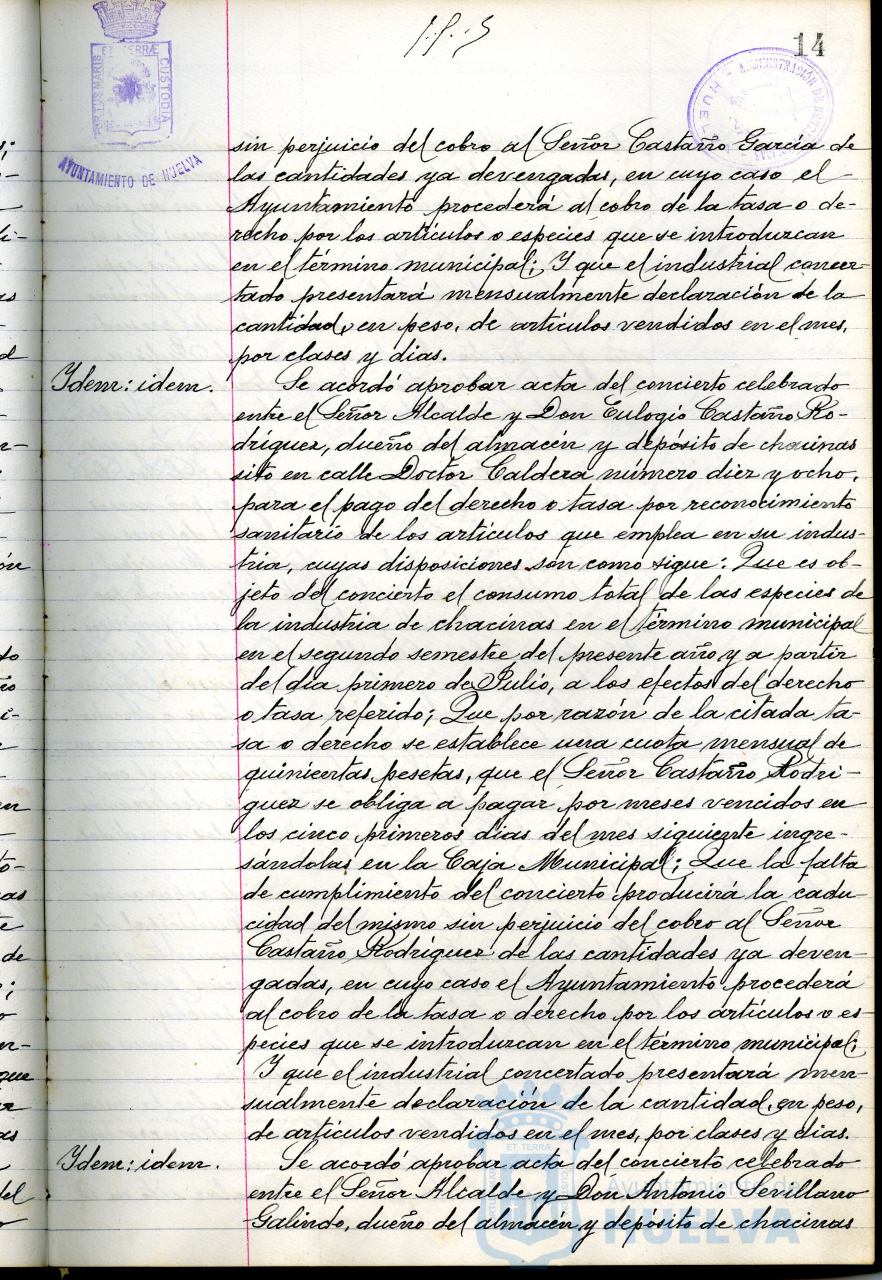 14
PORTUS MARIS ET TERRÆ CUSTODIA
AYUNTAMIENTO DE HUELVA
sin perjuicio del cobro al Señor Castaño García de
las cantidades ya devengadas, en cuyo caso el
Ayuntamiento procederá al cobro de la tasa o de-
recho por los artículos o especies que se introduzcan
en el término municipal; Y que el industrial concer-
tado presentará mensualmente declaración de la
cantidad, en peso, de artículos vendidos en el mes,
por clases y dias.
Idem: idem.
Se acordó aprobar acta del concierto celebrado
entre el Señor Alcalde y Don Eulogio Castaño Ro-
dríguez, dueño del almacén y depósito de chacinas
sito en calle Doctor Caldera número diez y ocho,
para el pago del derecho o tasa por reconocimiento
sanitario de los artículos que emplea en su indus-
tria, cuyas disposiciones son como sigue: Que es ob-
jeto del concierto el consumo total de las especies de
la industria de chacinas en el término municipal
en el segundo semestre del presente año y a partir
del día primero de Julio, a los efectos del derecho
o tasa referido; Que por razón de la citada ta-
sa o derecho se establece una cuota mensual de
quinientas pesetas, que el Señor Castaño Rodri-
guez se obliga a pagar por meses vencidos en
los cinco primeros dias del mes siguiente ingre-
sándolas en la Caja Municipal; Que la falta
de cumplimiento del concierto producirá la cadu-
cidad del mismo sin perjuicio del cobro al Señor
Castaño Rodríguez de las cantidades ya deven-
gadas, en cuyo caso el Ayuntamiento procederá
al cobro de la tasa o derecho por los artículos o es-
pecies que se introduzcan en el término municipal;
Y que el industrial concertado presentará men-
sualmente declaración de la cantidad, en peso,
de artículos vendidos en el mes, por clases y dias.
Idem: idem.
Se acordó aprobar acta del concierto celebrado
entre el Señor Alcalde y Don Antonio Sevillano
Galindo, dueño del almacén y depósito de chacinas
Ayuntamiento de
HUELVA